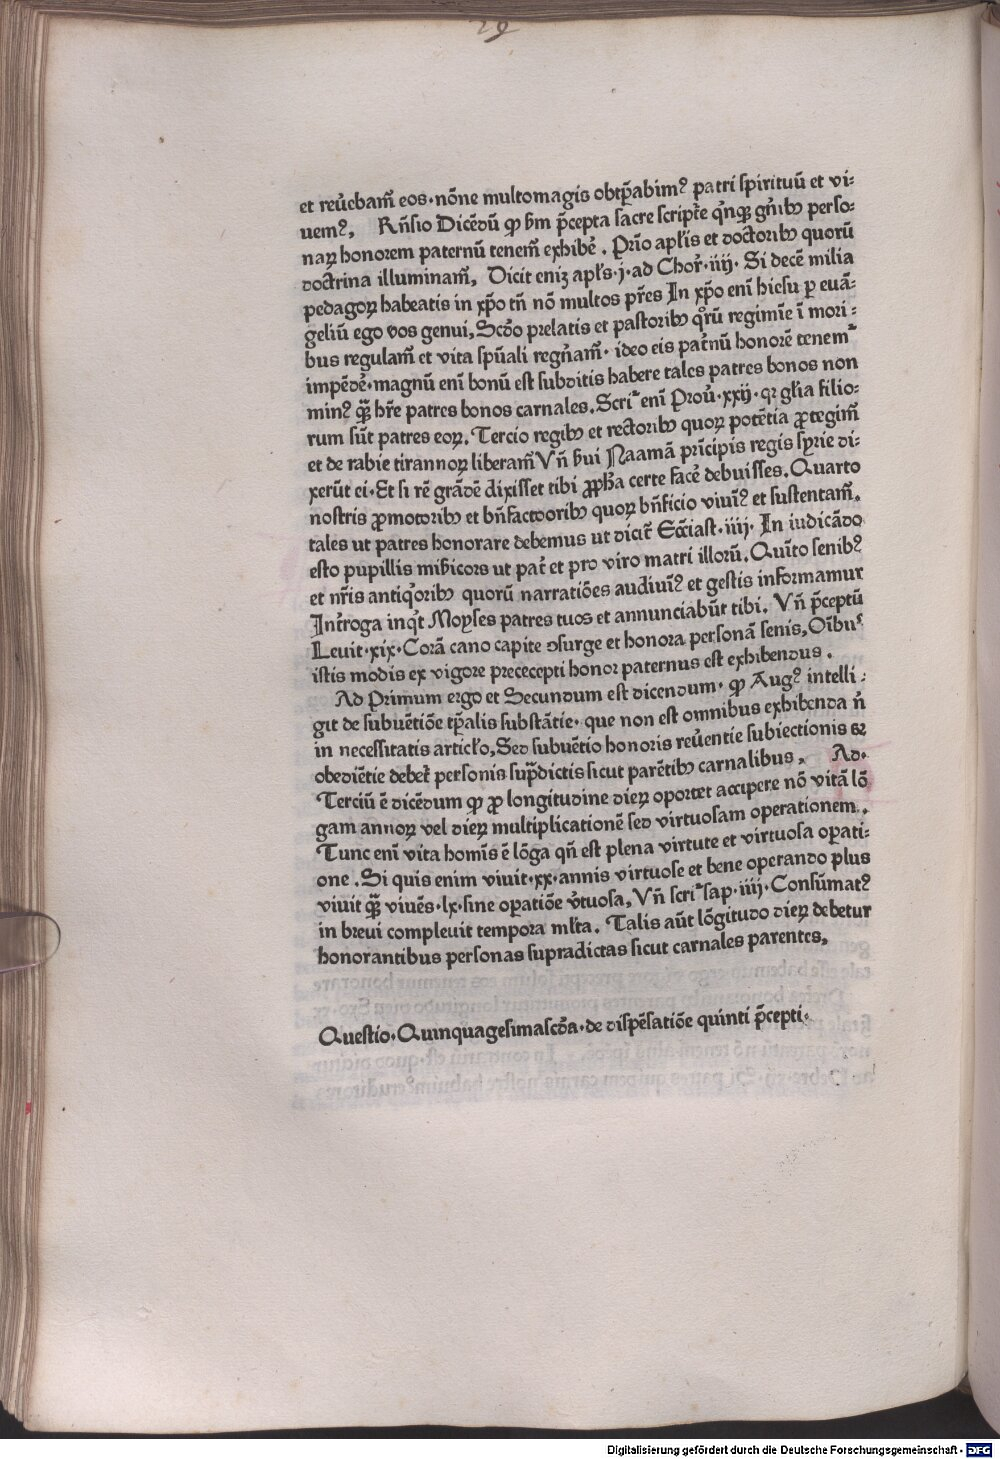 29
et reu̅ebam̅ eos·no̅ne multomagis obtp̅abimꝰ patri spirituu̅ et vi:
uemꝰ, Rn̅sio Dice̅du̅ ꝙ s̅m p̅cepta sacre script̅e qͥnqꝫ gn̅ibꝰ perso:
naꝝ honorem paternu̅ tenem̅ exhibe̅. Pri̅o apl̅is et doctoribꝰ quoru̅
doctrina illuminam̅, Dicit eniꝫ apl̅s·j·ad Chor̅·iiij· Si dece̅ milia
pedagoꝝ habeatis in xp̅o tn̅ no̅ multos pr̅es In xp̅o eni̅ hiesu p eua̅:
geliu̅ ego vos genui, Scd̅o prelatis et pastoribꝰ qͦru̅ regimi̅e i̅ mori:
bus regulam̅ et vita spu̅ali regn̅am̅· ideo eis pat̅nu̅ honore̅ tenem̅
impe̅de̅·magnu̅ eni̅ bonu̅ est subditis habere tales patres bonos non
minꝰ qꝫ̅ hr̅e patres bonos carnales. Scri̅ eni̅ Prou̅·xxij·qꝛ gl̅ia filio:
rum su̅t patres eoꝝ. Tercio regibꝰ et rectoribꝰ quoꝝ pote̅tia ꝓtegim̅
et de rabie tirannoꝝ liberam̅ Vn̅ s̅ui Naama̅ pri̅cipis regis syrie di:
xeru̅t ei·Et si re̅ gra̅de̅ dixisset tibi ꝓph̅a certe face̅ debuisses. Quarto
nostris ꝓmotoribꝰ et bn̅factooribꝰ quoꝝ bn̅ficio viuiꝰ̅ et sustentam̅.
tales ut patres honorare debemus ut dicit̅ Ecc̅iast·iiij· In iudica̅do
esto pupillis mis̅icors ut pat̅ et pro viro matri illoru̅. Qui̅to senibꝰ
et nr̅is antiqͦribꝰ quoru̅ narratio̅es audiui̅ꝰ et gestis informamur
Int̅roga inqͥt Moyses patres tuos et annunciabu̅t tibi. Vn̅ p̅ceptu̅
Leuit·xix·Cora̅ cano capite ꝯsurge et honora persona̅ senis, Oi̅bus
istis modis ex vigore prececepti honor paternus est exhibendus.
Ad Primum ergo et Secundum est dicendum· ꝙ Augꝰ intelli:
git de subue̅tio̅e tp̅alis substa̅tie· que non est omnibus exhibenda n̅
in necessitatis articl̅o, Sed subue̅tio honoris reu̅entie subiectionis et
obedie̅tie debet̅ personis sup̅dictis sicut pare̅tibꝰ carnalibus. Ad·
Terciu̅ e̅ dice̅dum ꝙ ꝓ longitudine dieꝝ oportet accipere no̅ vita̅ lo̅
gam annoꝝ vel dieꝝ multiplicatione̅ sed virtuosam operationem.
Tunc eni̅ vita homi̅s e̅ lo̅ga qn̅ est plena virtute et virtuosa opati:
one. Si quis enim viuit·xx·annis virtuose et bene operando plus
viuit qꝫ̅ viue̅s·lx·sine opatio̅e v̅tuosa, Vn̅ scri̅ sap·iiij·Consu̅matꝰ
in breui compleuit tempora ml̅ta. Talis au̅t lo̅gitudo dieꝝ debetur
honorantibus personas supradictas sicut carnales parentes,
Questio·Quinquagesimascd̅a·de dispe̅satio̅e quinti p̅cepti·
Digitalisierung gefördert durch die Deutsche Forschungsgemeinschaft - DFG